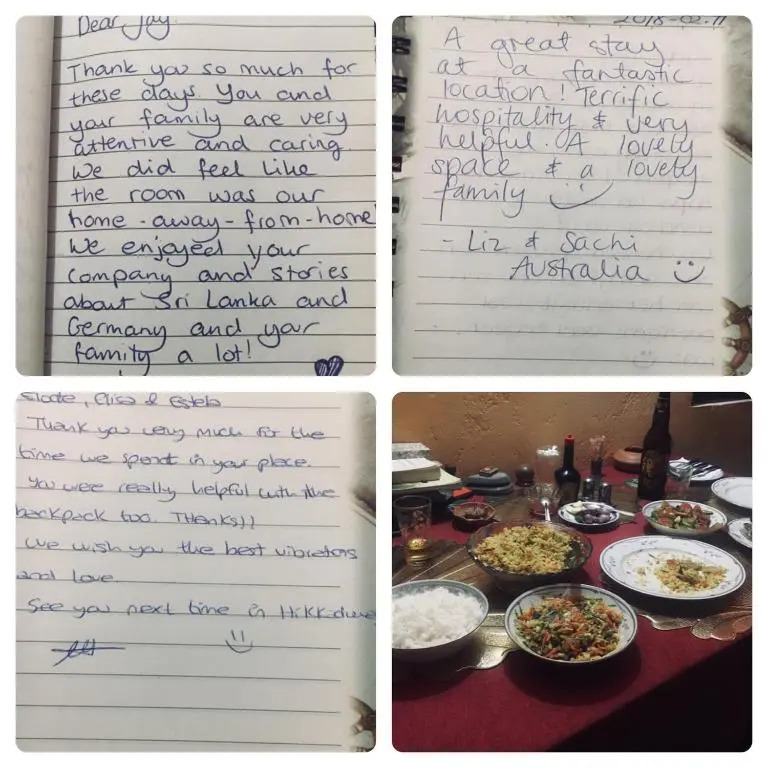 Dear Jay,
Thank you so much for
these days. You and
your family are very
attentive and caring.
We did feel like
the room was our
home-away-from-home
We enjoyed your
company and stories
about Sri Lanka and
Germany and your
family a lot!
2018-02-11
A great stay
at a fantastic
location! Terrific
hospitality & very
helpful. A lovely
space & a lovely
family
- Liz & Sachi
Australia
Elisa & Estela
Thank you very much for the
time we spent in your place.
You were really helpful with the
backpack too. THanks))
We wish you the best vibrations
and love
See you next time in